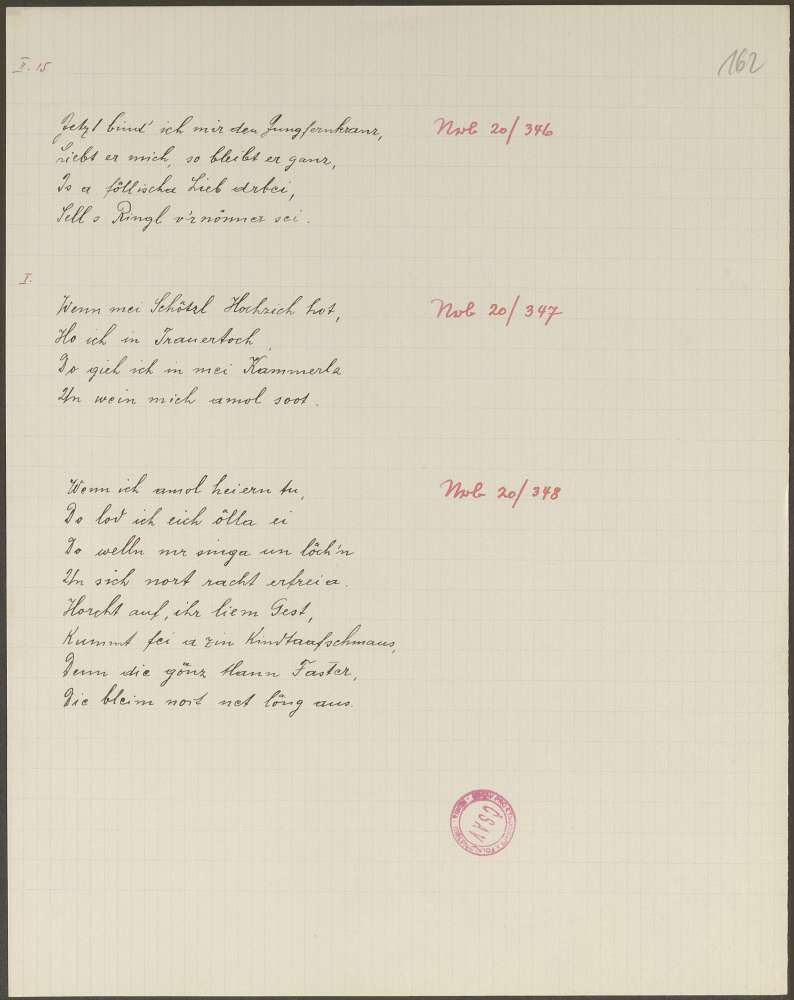 162
II. 15
Jetzt bind' ich mir den Jungfernkranz,
Liebt er mich, so bleibt er ganz,
Is a föllischa Lieb drbei,
Sell s Ringl v'rnönner sei.
Nrb 20/346
I.
Wenn mei Schötzl Hochzich hot,
Ho ich in Trauertoch,
Do gieh ich in mei Kammerla
Un wein mich amol soot.
Nrb 20/347
Wenn ich amol heiern tu,
Do lod ich eich ölla ei
Do welln mr singa un löch'n
Un sich nort racht erfreia.
Horcht auf, ihr liem Gest,
Kummt fei a zin Kindtaafschmaus,
Denn die gönz klann Faster,
Die bleim nort net löng aus.
Nrb 20/348
ČSAV